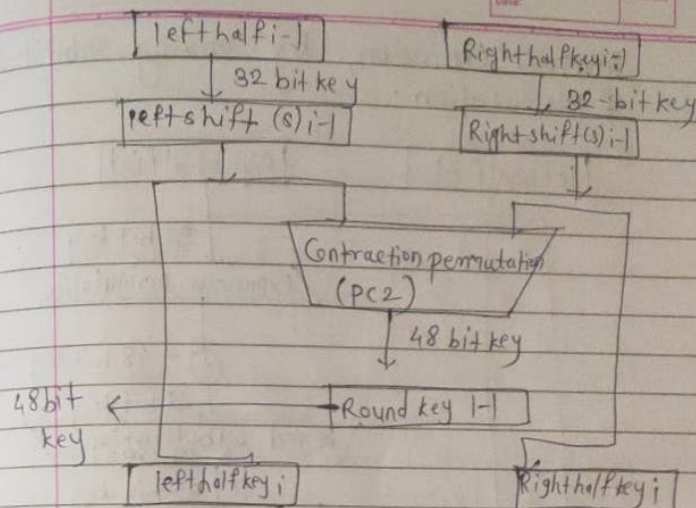 Date
left half i-1
Right half key i-1
32 bit key
32-bit key
left shift (s) i-1
Right shift (s) i-1
Contraction permutation
(PC2)
48 bit key
48 bit
key
Round key 1-1
left half key i
Right half key i